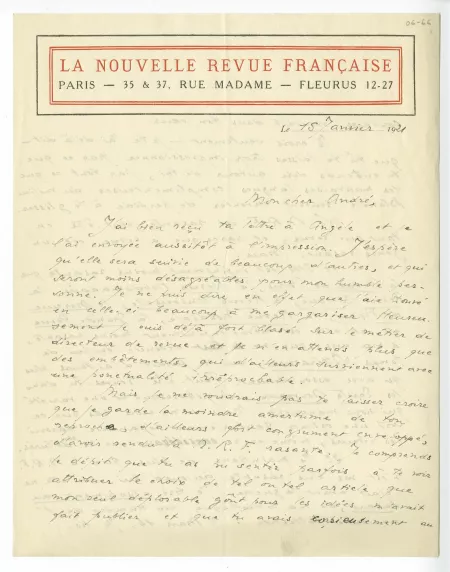 06-66
LA NOUVELLE REVUE FRANÇAISE
PARIS — 35 & 37, RUE MADAME — FLEURUS 12-27
le 15 Janvier 1921
Mon cher André,
J'ai bien reçu ta lettre à Angèle et je
l'ai envoyée aussitôt à l'impression. J'espère
qu'elle sera suivie de beaucoup d'autres, et qui
seront moins désagréables pour mon humble per-
sonne. Je ne puis dire en effet que j'aie trouvé
en celle-ci beaucoup à me gargariser. Heureu
sement je suis déjà fort blasé sur le métier de
directeur de revue et je n'en attends plus que
des embêtements, qui d'ailleurs surviennent avec
une ponctualité irréprochable.
Mais je ne voudrais pas te laisser croire
que je garde la moindre amertume de ton
reproche, d'ailleurs fort congrument enveloppé,
d'avoir rendu la N.R.F. rasante. Je comprends
le dépit que tu as pu sentir parfois à te voir
attribuer le choix de tel ou tel article que
mon seul déplorable goût pour les idées m'avait
fait publier et que tu avais au